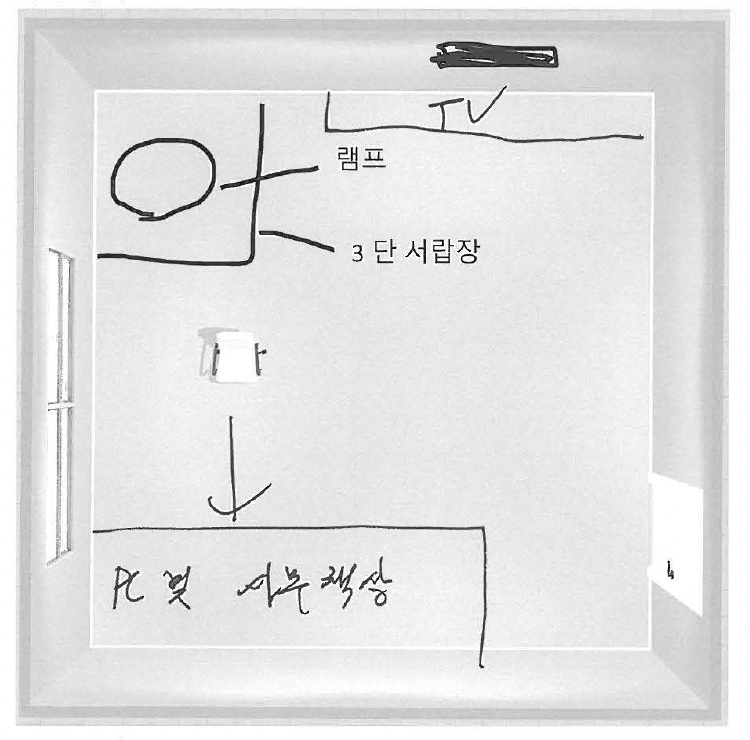 TV
램프
3 단 서랍장
PC 및 사무 책상